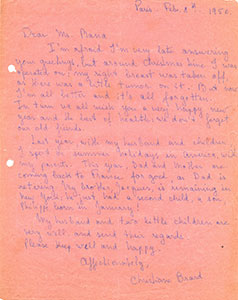 Paris, Feb 2nd, 1950
Dear Mr.
I'm afraid I'm very late answering
your greetings, but around Christmas time I was
operated on; my right breast was taken off,
as there was a little tumor on it. But now
I'm all better and it's all forgotten.
In turn we all wish you a very happy new
year and the best of health; we don't forget
our old friends.
Last year, with my husband and children
I spent my summer holidays in America, with
my parents. This year, Dad and Mother are
coming back to France for good, as Dad is
retiring. My brother, Jacques, is remaining in
New York. He just had a second child, a son
Philippe born in January!
My husband and two little children are
very well, and send their regards
Please keep well and happy.
Affectionately,
Christiane